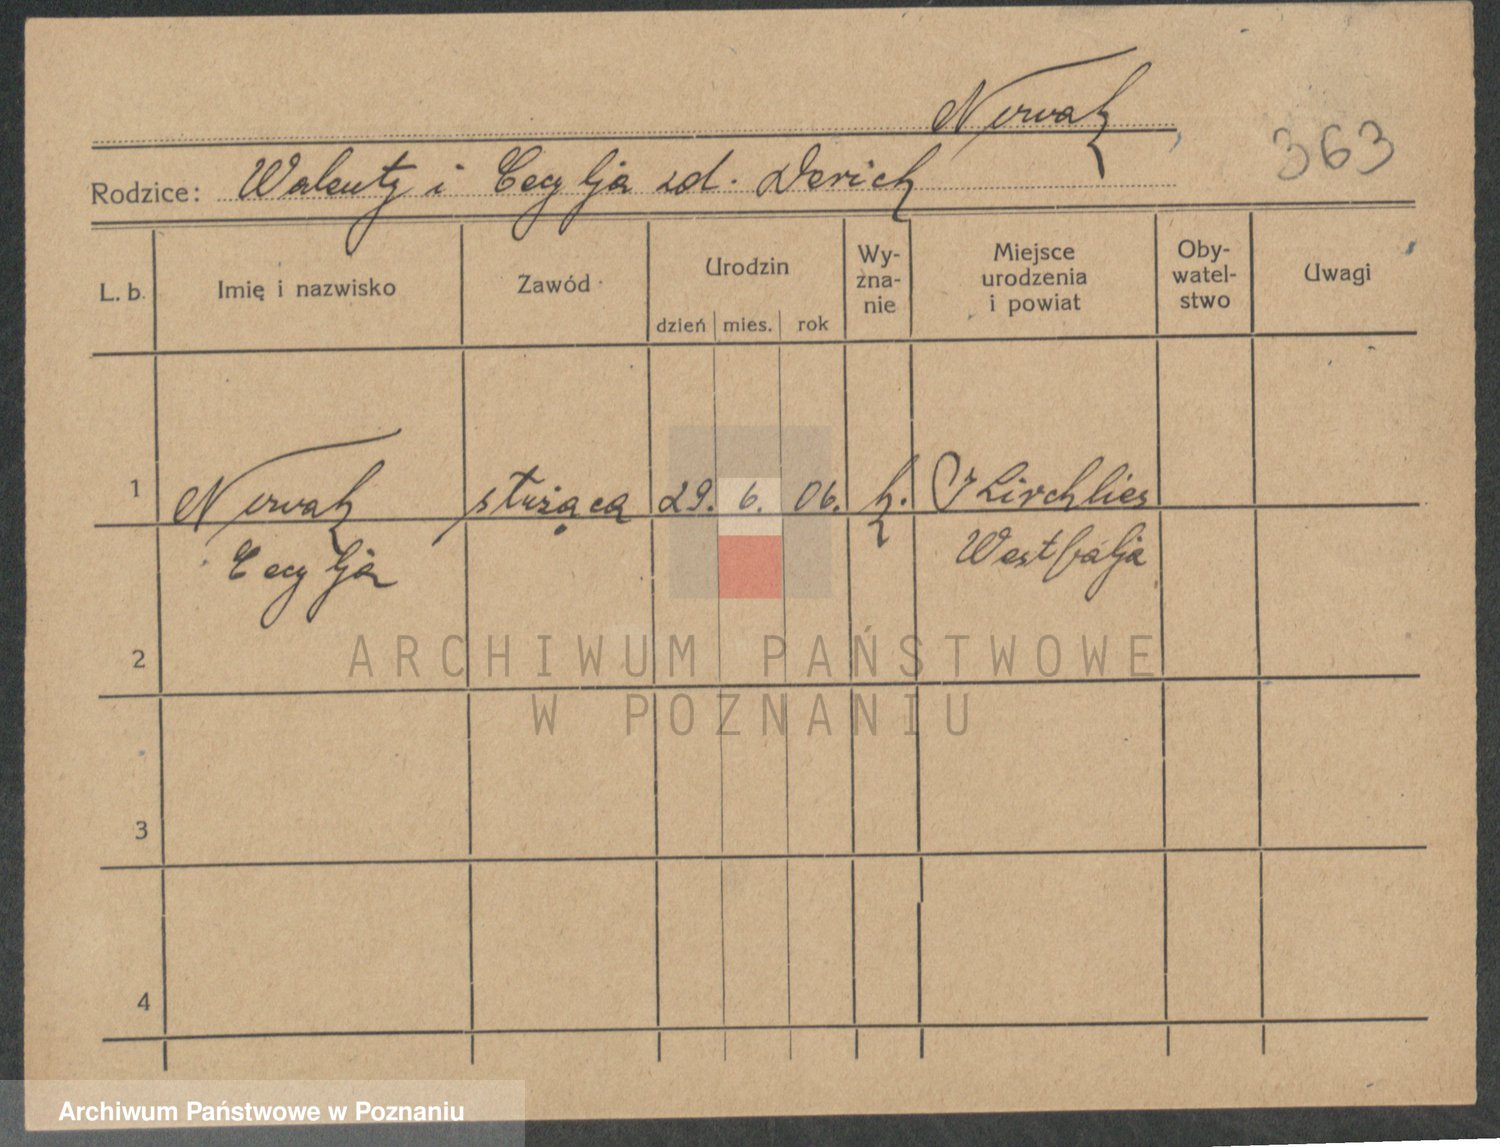 Nowak
363
Rodzice: Walenty i Cecylja zd. Derich
L. b. Imię i nazwisko Zawód Urodzin Wy-zna-nie Miejsce urodzenia i powiat Oby-watel-stwo Uwagi
dzień mies. rok
1 Nowak służąca 29. 6. 06. k.
Cecylja Westfalja
2
ARCHIWUM PAŃSTWOWE
W POZNANIU
3
4
Archiwum Państwowe w Poznaniu